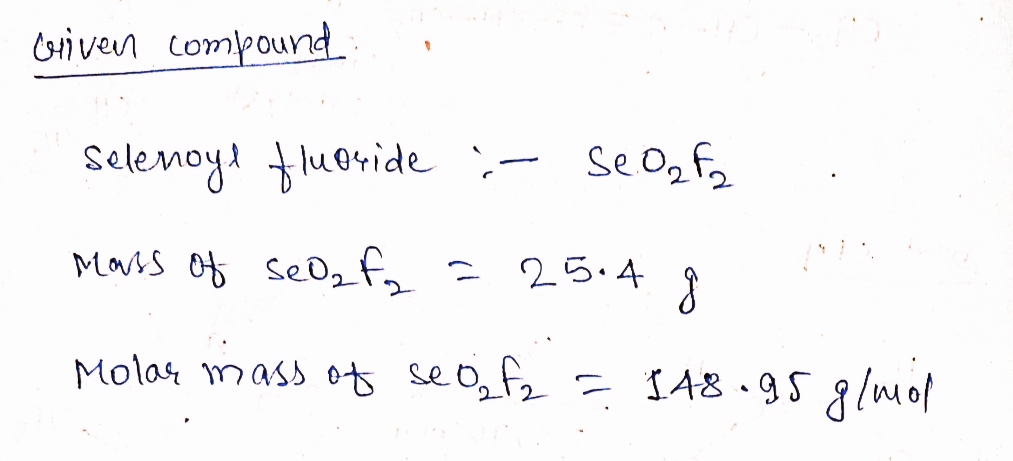 Given compound
Selenoyl fluoride :- SeO₂F₂
Mass of SeO₂F₂ = 25.4 g
Molar mass of SeO₂F₂ = 148.95 g/mol